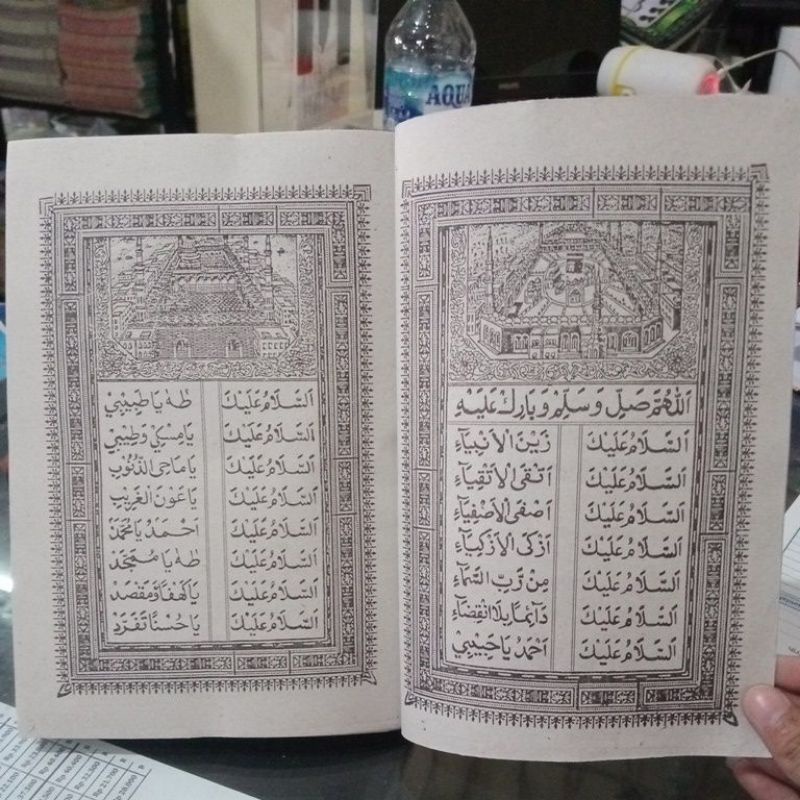 اَللّٰهُمَّ صَلِّ وَسَلِّمْ وَبَارِكْ عَلَيْهِ
اَلسَّلَامُ عَلَيْكَ زَيْنَ الْاَنْبِيَاءِ
اَلسَّلَامُ عَلَيْكَ اَتْقَى الْاَتْقِيَاءِ
اَلسَّلَامُ عَلَيْكَ اَصْفَى الْاَصْفِيَاءِ
اَلسَّلَامُ عَلَيْكَ اَزْكَى الْاَزْكِيَاءِ
اَلسَّلَامُ عَلَيْكَ مِنْ رَّبِّ السَّمَاءِ
اَلسَّلَامُ عَلَيْكَ دَآئِمًا بِلَا انْقِضَاءِ
اَلسَّلَامُ عَلَيْكَ اَحْمَدُ يَاحَبِيْبِيْ
اَلسَّلَامُ عَلَيْكَ طٰهٰ يَا طَبِيْبِيْ
اَلسَّلَامُ عَلَيْكَ يَامِسْكِيْ وَطِيْبِيْ
اَلسَّلَامُ عَلَيْكَ يَامَاحِيَ الذُّنُوْبِ
اَلسَّلَامُ عَلَيْكَ يَاعَوْنَ الْغَرِيْبِ
اَلسَّلَامُ عَلَيْكَ اَحْمَدُ يَامُحَمَّدُ
اَلسَّلَامُ عَلَيْكَ طٰهٰ يَا مُمَجَّدُ
اَلسَّلَامُ عَلَيْكَ يَاكَهْفًا وَّمَقْصَدُ
اَلسَّلَامُ عَلَيْكَ يَاحُسْنًا تَفَرَّدُ
AQUA